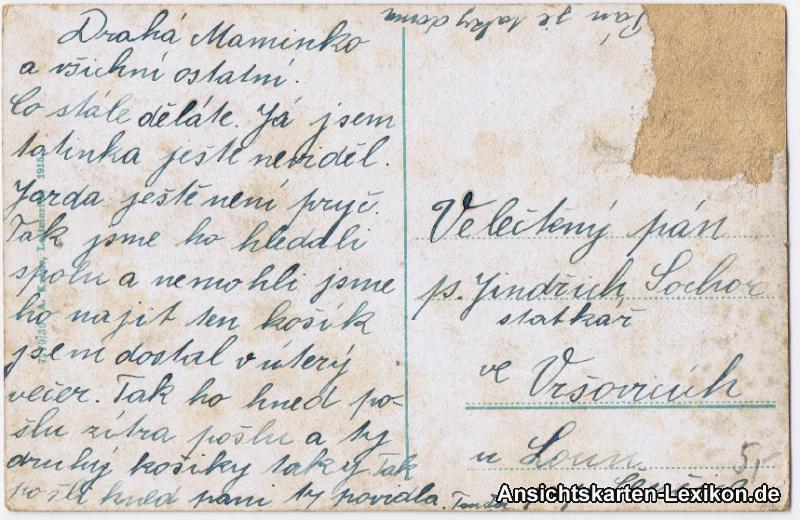 Drahá Maminko
a všichni ostatní.
Co stále děláte. Já jsem
tatinka ještě neviděl.
Jarda ještě není pryč.
Tak jsme ho hledali
spolu a nemohli jsme
ho najit ten košík
jsem dostal v úterý
večer. Tak ho hned po-
šlu zítra pošlu a ty
druhý košíky taky. Tak
pošli hned paní ty povidla.
Pán je taky doma
Velectěný pán
p. Jindřich Sochor
statkář
ve Vršovicích
u Loun
5,-
1915
Ansichtskarten-Lexikon.de